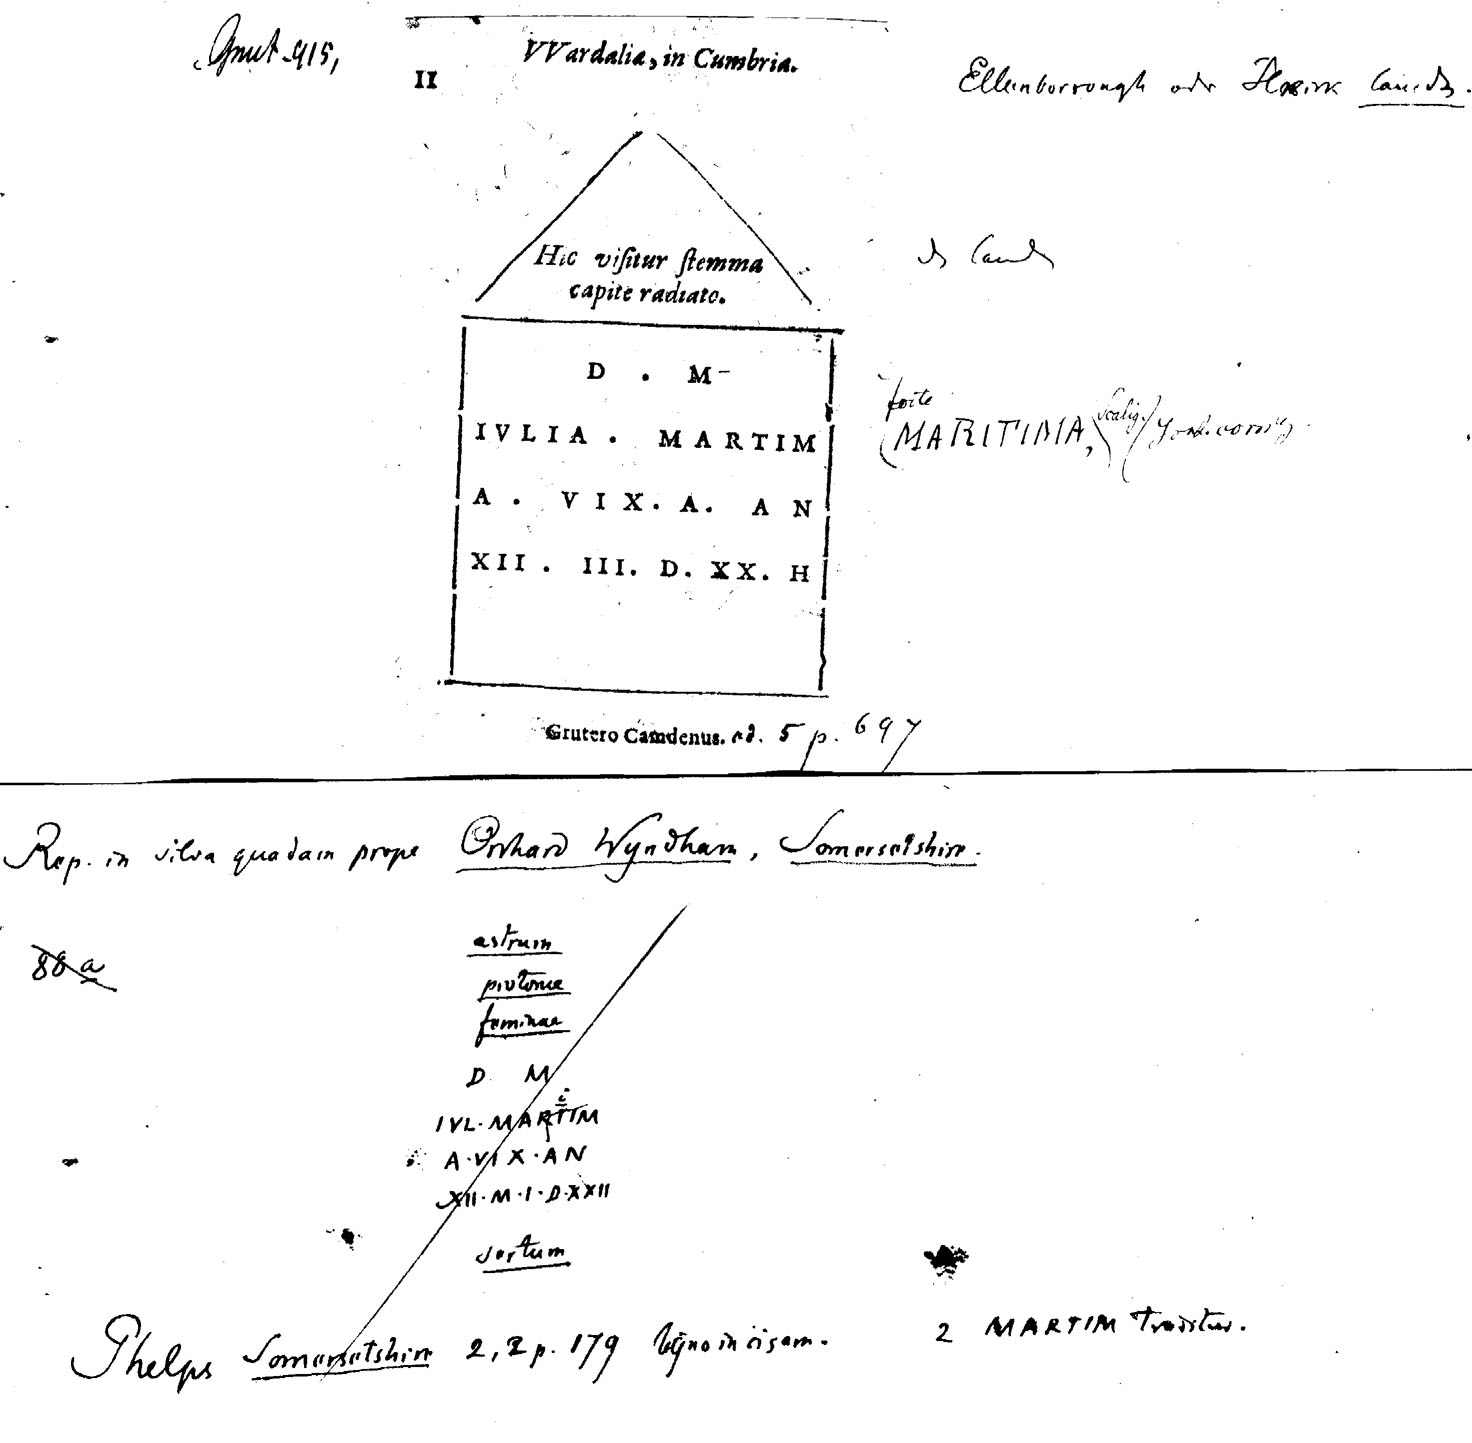 Grut. 915,
VVardalia, in Cumbria.
II
Ellenborrough oder
Hic viſitur ſtemma
capite radiato.
D . M
IVLIA . MARTIM
forte
(MARITIMA, Scalig.
A . VIX. A. AN
XII . III. D. XX. H
Grutero Camdenus. ed. 5 p. 697
Rep. in silva quadam prope Orchard Wyndham, Somersetshire.
88 a
astrum
protome
feminae
D M
i
IVL·MARTIM
A·VIX·AN
XII·M·I·D·XXII
sertum
Phelps Somersetshire 2, 2 p. 179 ligno incisam.
2 MARTIM traditur.